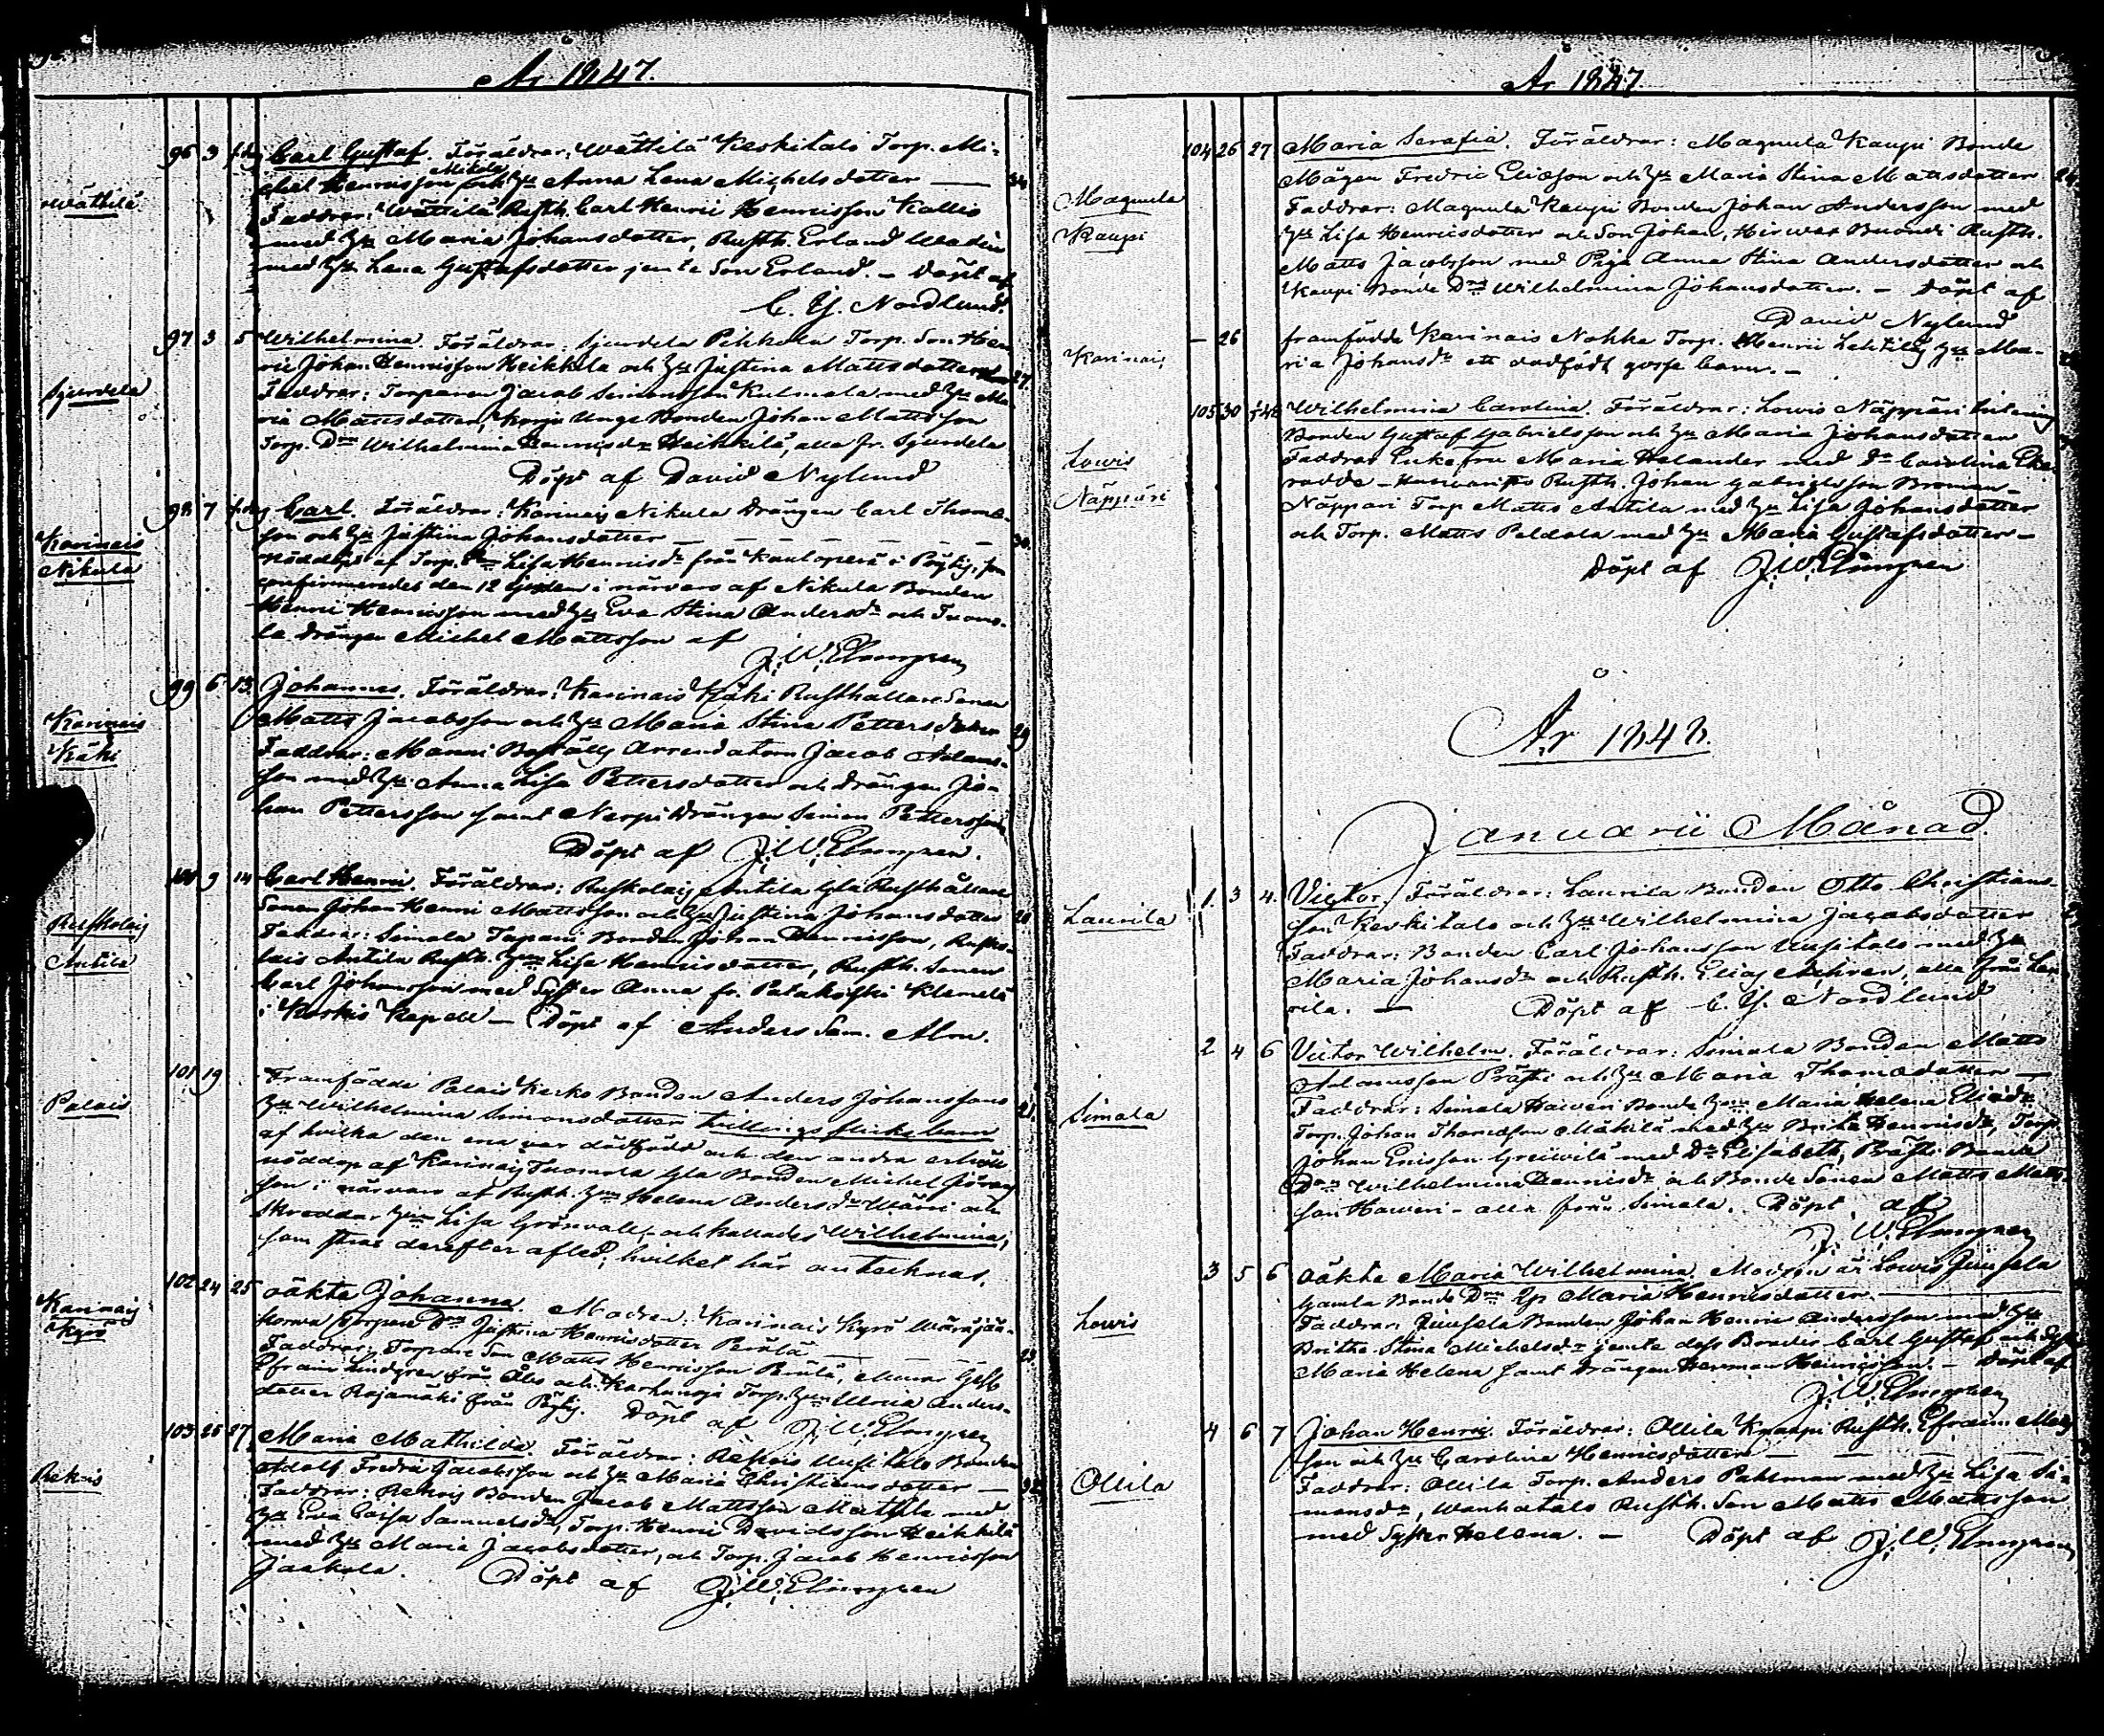 År 1847.
Wättilä
96 3 s.dag Carl Gustaf. Föräldrar: Wättilä Keskitalo Torp. Mi-
chel Henricsson Mikola och Hu Anna Lena Michelsdotter 34
Faddrar: Wättilä Rusth. Carl Henric Henricsson Kallis
med Hu Maria Johansdotter, Rusth. Erland Wadén
med Hu Lena Gustafsdotter jemte Son Erland. - Döpt af
C. G. Nordlund.
Sjurdela
97 3 5 Wilhelmina. Föräldrar: Sjurdela Pikkola Torp. Son Hen-
ric Johan Henricsson Heikkilä och Hu Justina Mattsdotter 27.
Faddrar: Torparen Jacob Simonsson Kulmala med Hu Ma-
ria Mattsdotter, Korpi Unge Bonden Johan Mattsson
Torp. Dr Wilhelmina Henricsdr Heikkilä, alla fr. Sjurdela
Döpt af David Nylund
Karinais
Nikula
98 7 s.dag Carl. Föräldrar: Karinais Nikula Drängen Carl Thomæ-
son och Hu Justina Johansdotter 30.
nöddöpt af Torp. Lisa Henricsdr från i Pöytis, som
confirmerades den 12 i närvaro af Nikula Bonden
Henric Henricsson med Hu Eva Stina Andersdr och Tuomo-
la Drängen Michel Mattsson af
J. W. Elmgren
Karinais
Käki
99 6 13. Johannes. Föräldrar: Karinais Käki Rusthållare Sonen
Matts Jacobsson och Hu Maria Stina Pettersdotter 29
Faddrar: Manni Boställs Arrendatorn Jacob Adams-
son med Hu Anna Lisa Pettersdotter och Drängen Jo-
han Pettersson samt Nerpi Drängen Simon Pettersson
Döpt af J. W. Elmgren.
Ruskolais
Antila
100 9 14 Carl Henric. Föräldrar: Ruskolais Antila Gla Rusthållare
Sonen Johan Henric Mattsson och Hu Justina Johansdotter 20
Faddrar: Simala Tapani Bonden Johan Henricsson, Rusko-
lais Antila Rusth. Hu Lisa Henricsdotter, Rusth. Sonen
Carl Johansson med Syster Anna fr. Patakoski Klemelä
i Koskis Kapell - Döpt af Anders Sam. Alm.
Palais
101 19 Framfödde Palais Kerko Bonden Anders Johanssons
Hu Wilhelmina Simonsdotter twillings flickebarn 21.
af hvilka den ena var dödfödd och den andra erhöll
nöddop af Karinais Tuomola Gla Bonden Michel Jöran-
son i närvaro af Rusth. Hu Helena Andersdr Wärri och
Skreddar Hu Lisa Grönvall, och kallades Wilhelmina;
som strax derefter afled; hvilket här antecknas.
Karinais
Kyrö
102 24 25 oäkta Johanna. Modren: Karinais Kyrö Wärnjään-
korwa Torpare Dr Justina Henricsdotter Perälä 23
Faddrar: Torpare Son Matts Henricsson Perälä, Murar Gesll
Efraim Lindgren från Åbo och Karhunoja Torp. Hu Maria Anders-
dotter Rajamäki från Pöytis. Döpt af J. W. Elmgren
Rekois
103 25 27 Maria Mathilda. Föräldrar: Rekois Uusitalo Bonden
Adolf Fredric Jacobsson och Hu Maria Christiansdotter 32
Faddrar: Rekois Bonden Jacob Mattsson Mattila med
Hu Eva Caisa Samuelsdr, Torp. Henric Davidsson Heikkilä
med Hu Maria Jacobsdotter, och Torp. Jacob Henricsson
Jaakola. Döpt af J. W. Elmgren
År 1847
Magnula
Kaupi
104 26 27 Maria Serafia. Föräldrar: Magnula Kaupi Bonde
Mågen Fredric Eliæson och Hu Maria Stina Mattsdotter 24
Faddrar: Magnula Kaupi Bonden Johan Andersson med
Hu Lisa Henricsdotter och Son Johan, Hirwas Buondi Rusth.
Matts Jacobsson med Piga Anna Stina Andersdotter och
Kaupi Bonde Dr Wilhelmina Johansdotter. - Döpt af
David Nylund
Karinais
- 26 framfödde Karinais Nokka Torp. Henric Lehtilä Hu Ma-
ria Johansdr ett dödfödt gosse barn. -
Lowis
Näppäri
105 30 Wilhelmina Carolina. Föräldrar: Lowis Näppäri
Bonden Gustaf Gabrielsson och Hu Maria Johansdotter
Faddrar Enkefru Maria Helander med Dr Carolina
Rusth. Johan Gabrielsson Broman -
Näppäri Torp Matts Antila med Hu Lisa Johansdotter
och Torp. Matts Peldola med Hu Maria Gustafsdotter -
Döpt af J. W. Elmgren
År 1848.
Januarii Månad.
Laurila
1. 3 4. Victor. Föräldrar: Laurila Bonden Otto Christians-
son Keskitalo och Hu Wilhelmina Jacobsdotter
Faddrar: Bonden Carl Johansson Uusitalo med Hu
Maria Johansdr och Rusth. Elias Achrén, alla från Lau-
rila. - Döpt af C. G. Nordlund
Simala
2 4 6 Victor Wilhelm. Föräldrar: Simala Bonden Matts
Adamsson Prästi och Hu Maria Thomædotter -
Faddrar: Simala Haiweri Bonde Hu Maria Helena Eliædr
Torp. Johan Thomæson Mäkilä med Hu Brita Henricsdr, Torp.
Johan Ericsson Greiwilä med Dr Elisabeth, Prästi Bonde
Dr Wilhelmina Henricsdr och Bonde Sonen Matts Matts-
son Haweri - alla från Simala. Döpt af
J. W. Elmgren
Lowis
3 5 6 oäkta Maria Wilhelmina Modren är Lowis Juusela
Gamla Bonde Dr Maria Henricsdotter.
Faddrar: Juusela Bonden Johan Henric Andersson med Hu
Britha Stina Michelsdr jemte dess Broder Carl Gustaf och Syster
Maria Helena samt Drängen Herman Henricsson. - Döpt af
J. W. Elmgren
Ollila
4 6 7 Johan Henric. Föräldrar: Ollila Knaapi Rusth. Efraim Matts-
son och Hu Carolina Henricsdotter
Faddrar: Ollila Torp. Anders Pahlman med Hu Lisa Si-
monsdr, Wanhatalo Rusth. Son Matts Mattsson
med Syster Helena. - Döpt af J. W. Elmgren